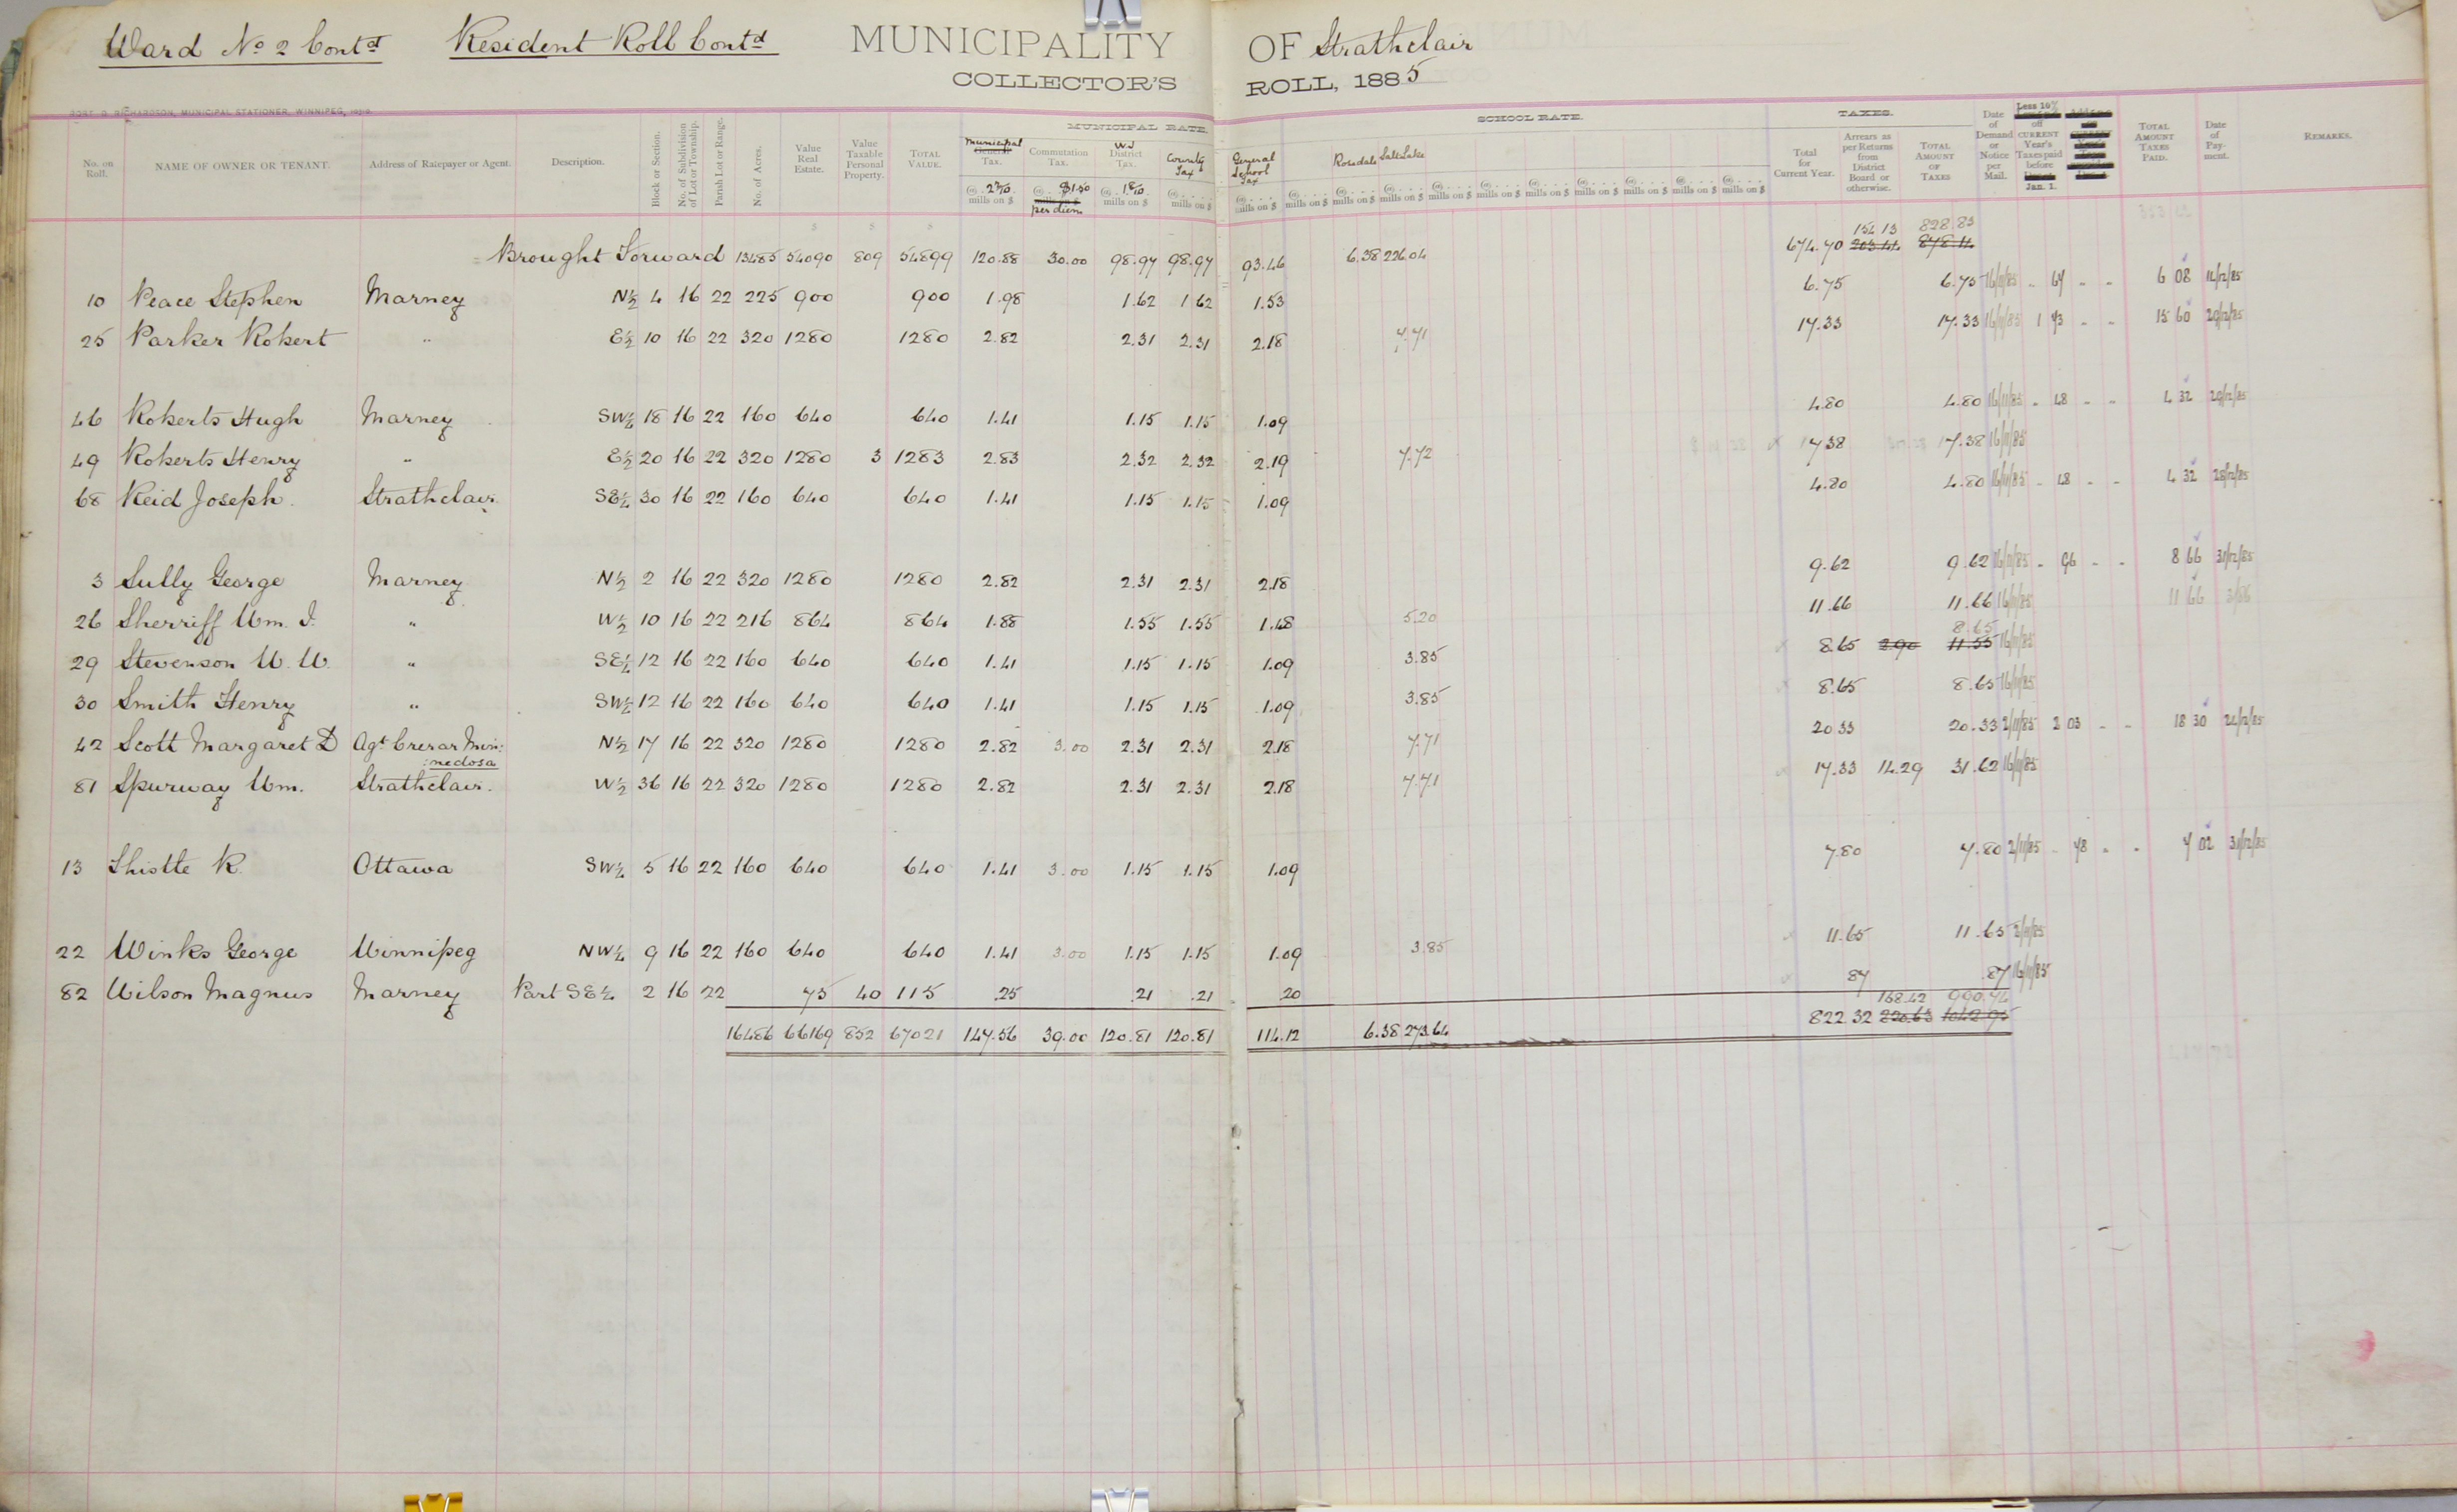 Ward No 2 Contd Resident Roll Contd MUNICIPALITY OF Strathclair
COLLECTOR'S ROLL, 1885
MUNICIPAL RATE. SCHOOL RATE. TAXES.
No. on Roll. NAME OF OWNER OR TENANT. Address of Ratepayer or Agent. Description. Block or Section. No. of Subdivision of Lot or Township. Parish Lot or Range. No. of Acres. Value Real Estate. Value Taxable Personal Property. TOTAL VALUE. Municipal Tax. Commutation Tax. W.J District Tax. County Tax General School Tax Rosedale Salt Lake Total for Current Year. Arrears as per Returns from District Board or otherwise. TOTAL AMOUNT OF TAXES Date of Demand or Notice per Mail. Less 10% off CURRENT Year's Taxes paid before Jan. 1. TOTAL AMOUNT TAXES PAID. Date of Payment. REMARKS.
@ 2 2/10 mills on $ @ $1.50 per diem @ 1 8/10 mills on $ @ mills on $ @ mills on $ @ mills on $ @ mills on $ @ mills on $ @ mills on $ @ mills on $ @ mills on $ @ mills on $ @ mills on $ @ mills on $ @ mills on $
154.13 828.83
Brought Forward 13485 54090 809 54899 120.88 30.00 98.97 98.97 93.46 6.38 226.04 674.70 203.44 878.14
10 Peace Stephen Marney N½ 4 16 22 225 900 900 1.98 1.62 1.62 1.53 6.75 6.75 16/11/85 " 67 " " 6 08 14/12/85
25 Parker Robert " E½ 10 16 22 320 1280 1280 2.82 2.31 2.31 2.18 7.71 17.33 17.33 16/11/85 1 73 " " 15 60 29/12/85
46 Roberts Hugh Marney SW¼ 18 16 22 160 640 640 1.41 1.15 1.15 1.09 4.80 4.80 16/11/85 " 48 " " 4 32 29/12/85
49 Roberts Henry " E½ 20 16 22 320 1280 3 1283 2.83 2.32 2.32 2.19 7.72 x 17.38 17.38 16/11/85
68 Reid Joseph Strathclair SE¼ 30 16 22 160 640 640 1.41 1.15 1.15 1.09 4.80 4.80 16/11/85 " 48 " " 4 32 28/12/85
3 Sully George Marney N½ 2 16 22 320 1280 1280 2.82 2.31 2.31 2.18 9.62 9.62 16/11/85 " 96 " " 8 66 31/12/85
26 Sherriff Wm. J. " W½ 10 16 22 216 864 864 1.88 1.55 1.55 1.48 5.20 11.66 11.66 16/11/85 11 66
8.65
29 Stevenson W. W. " SE¼ 12 16 22 160 640 640 1.41 1.15 1.15 1.09 3.85 x 8.65 2.90 11.55 16/11/85
30 Smith Henry " SW¼ 12 16 22 160 640 640 1.41 1.15 1.15 1.09 3.85 x 8.65 8.65 16/11/85
42 Scott Margaret D Agt Crerar Min: N½ 17 16 22 320 1280 1280 2.82 3.00 2.31 2.31 2.18 7.71 20.33 20.33 2/11/85 2 03 " " 18 30 24/12/85
:nedosa
81 Spurway Wm. Strathclair. W½ 36 16 22 320 1280 1280 2.82 2.31 2.31 2.18 7.71 x 17.33 14.29 31.62 16/11/85
13 Thistle R. Ottawa SW¼ 5 16 22 160 640 640 1.41 3.00 1.15 1.15 1.09 7.80 7.80 2/11/85 " 78 " " 7 02 31/12/85
22 Winks George Winnipeg NW¼ 9 16 22 160 640 640 1.41 3.00 1.15 1.15 1.09 3.85 x 11.65 11.65 2/11/85
82 Wilson Magnus Marney Part SE¼ 2 16 22 75 40 115 .25 .21 .21 .20 x 87 .87 16/11/85
168.42 990.74
16486 66169 852 67021 147.56 39.00 120.81 120.81 114.12 6.38 273.64 822.32 220.63 1042.95